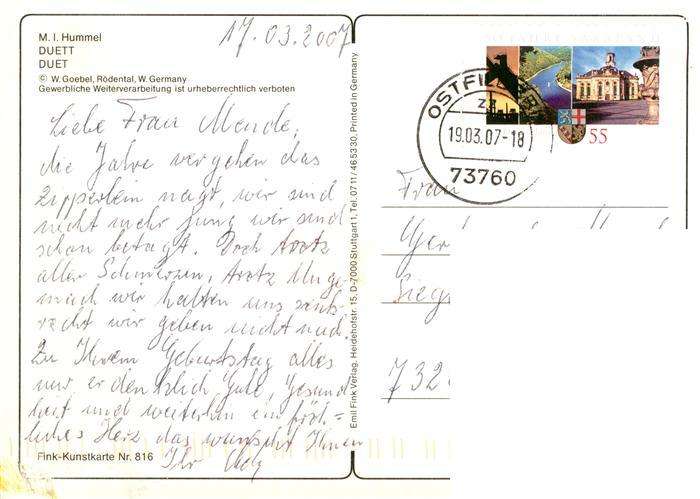 M. I. Hummel
DUETT
DUET
© W. Goebel, Rödental, W. Germany
Gewerbliche Weiterverarbeitung ist urheberrechtlich verboten
17.03.2007
Liebe Frau Mende,
die Jahre vergehen das
Zipperlein nagt, wir sind
nicht mehr jung wir sind
schon betagt. Doch trotz
aller Schmerzen, trotz Unge-
mach wir halten uns senk-
recht wir geben nicht nach.
Zu Ihrem Geburtstag alles
nur erdenklich Gute, Gesund
heit und weiterhin ein fröh=
liches Herz das wünscht Ihnen
Ihr
Fink-Kunstkarte Nr. 816
Emil Fink Verlag, Heidehofstr. 15, D-7000 Stuttgart 1, Tel. 0711/465330, Printed in Germany
zz
19.03.07-18
73760
55
Frau
Ger
Sieg
732